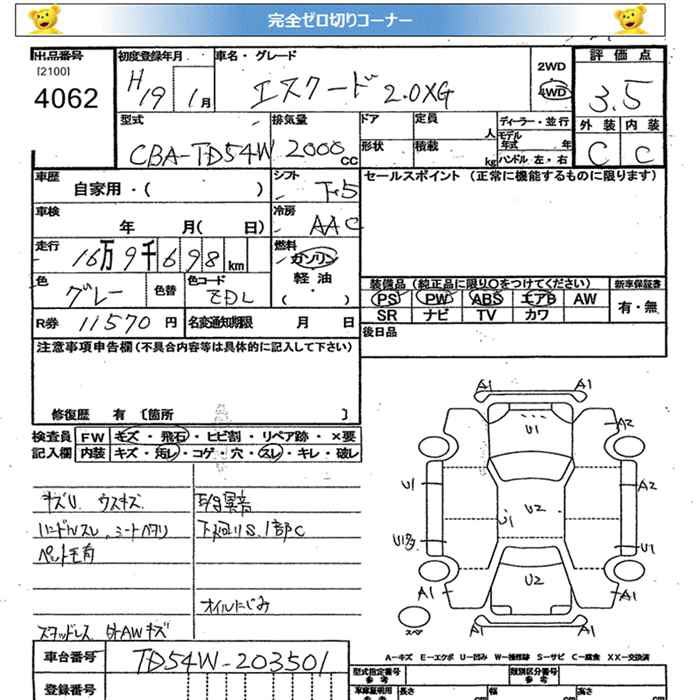 完全ゼロ切りコーナー
出品番号 初度登録年月 車名・グレード 2WD 評価点
[2100]
4062 H19 1月 エスクード 2.0XG 4WD 3.5
型式 排気量 ドア 定員 人 ディーラー・並行 外装 内装
CBA-TD54W 2000cc 形状 積載 kg モデル年式 年 C C
ハンドル 左・右
車歴 シフト セールスポイント (正常に機能するものに限ります)
自家用・( ) F5
車検 冷房
年 月( 日) AAC
走行 燃料
16万9千698km ガソリン
軽油
色 色替 色コード ( ・ ) 装備品(純正品に限り○をつけてください) 新車保証書
グレー ZDL PS PW ABS エアB AW 有・無
R券 11570円 名変通知期限 月 日 SR ナビ TV カワ
注意事項申告欄(不具合内容等は具体的に記入して下さい) 後日品
修復歴 有 [箇所 ]
検査員 FW キズ・飛石・ヒビ割・リペア跡・×要
記入欄 内装 キズ・汚レ・コゲ・穴・スレ・キレ・破レ
キズU ウスキズ E/g異音
ハンドルスレ、シートヘタリ 下廻りS、1部C
ペット毛有
オイルにじみ
スタッドレス 外AWキズ
A1 A1
U1 A2
U1 U1 U2 A2
U1
A1 U2 A1
スペア A1 A1
A-キズ E-エクボ U-凹み W-補修跡 S-サビ C-腐食 XX-交換済
車台番号 TD54W-203501 型式指定番号 参考 類別区分番号 参考
登録番号 車庫証明用 参考 長さ cm 幅 cm 高さ cm